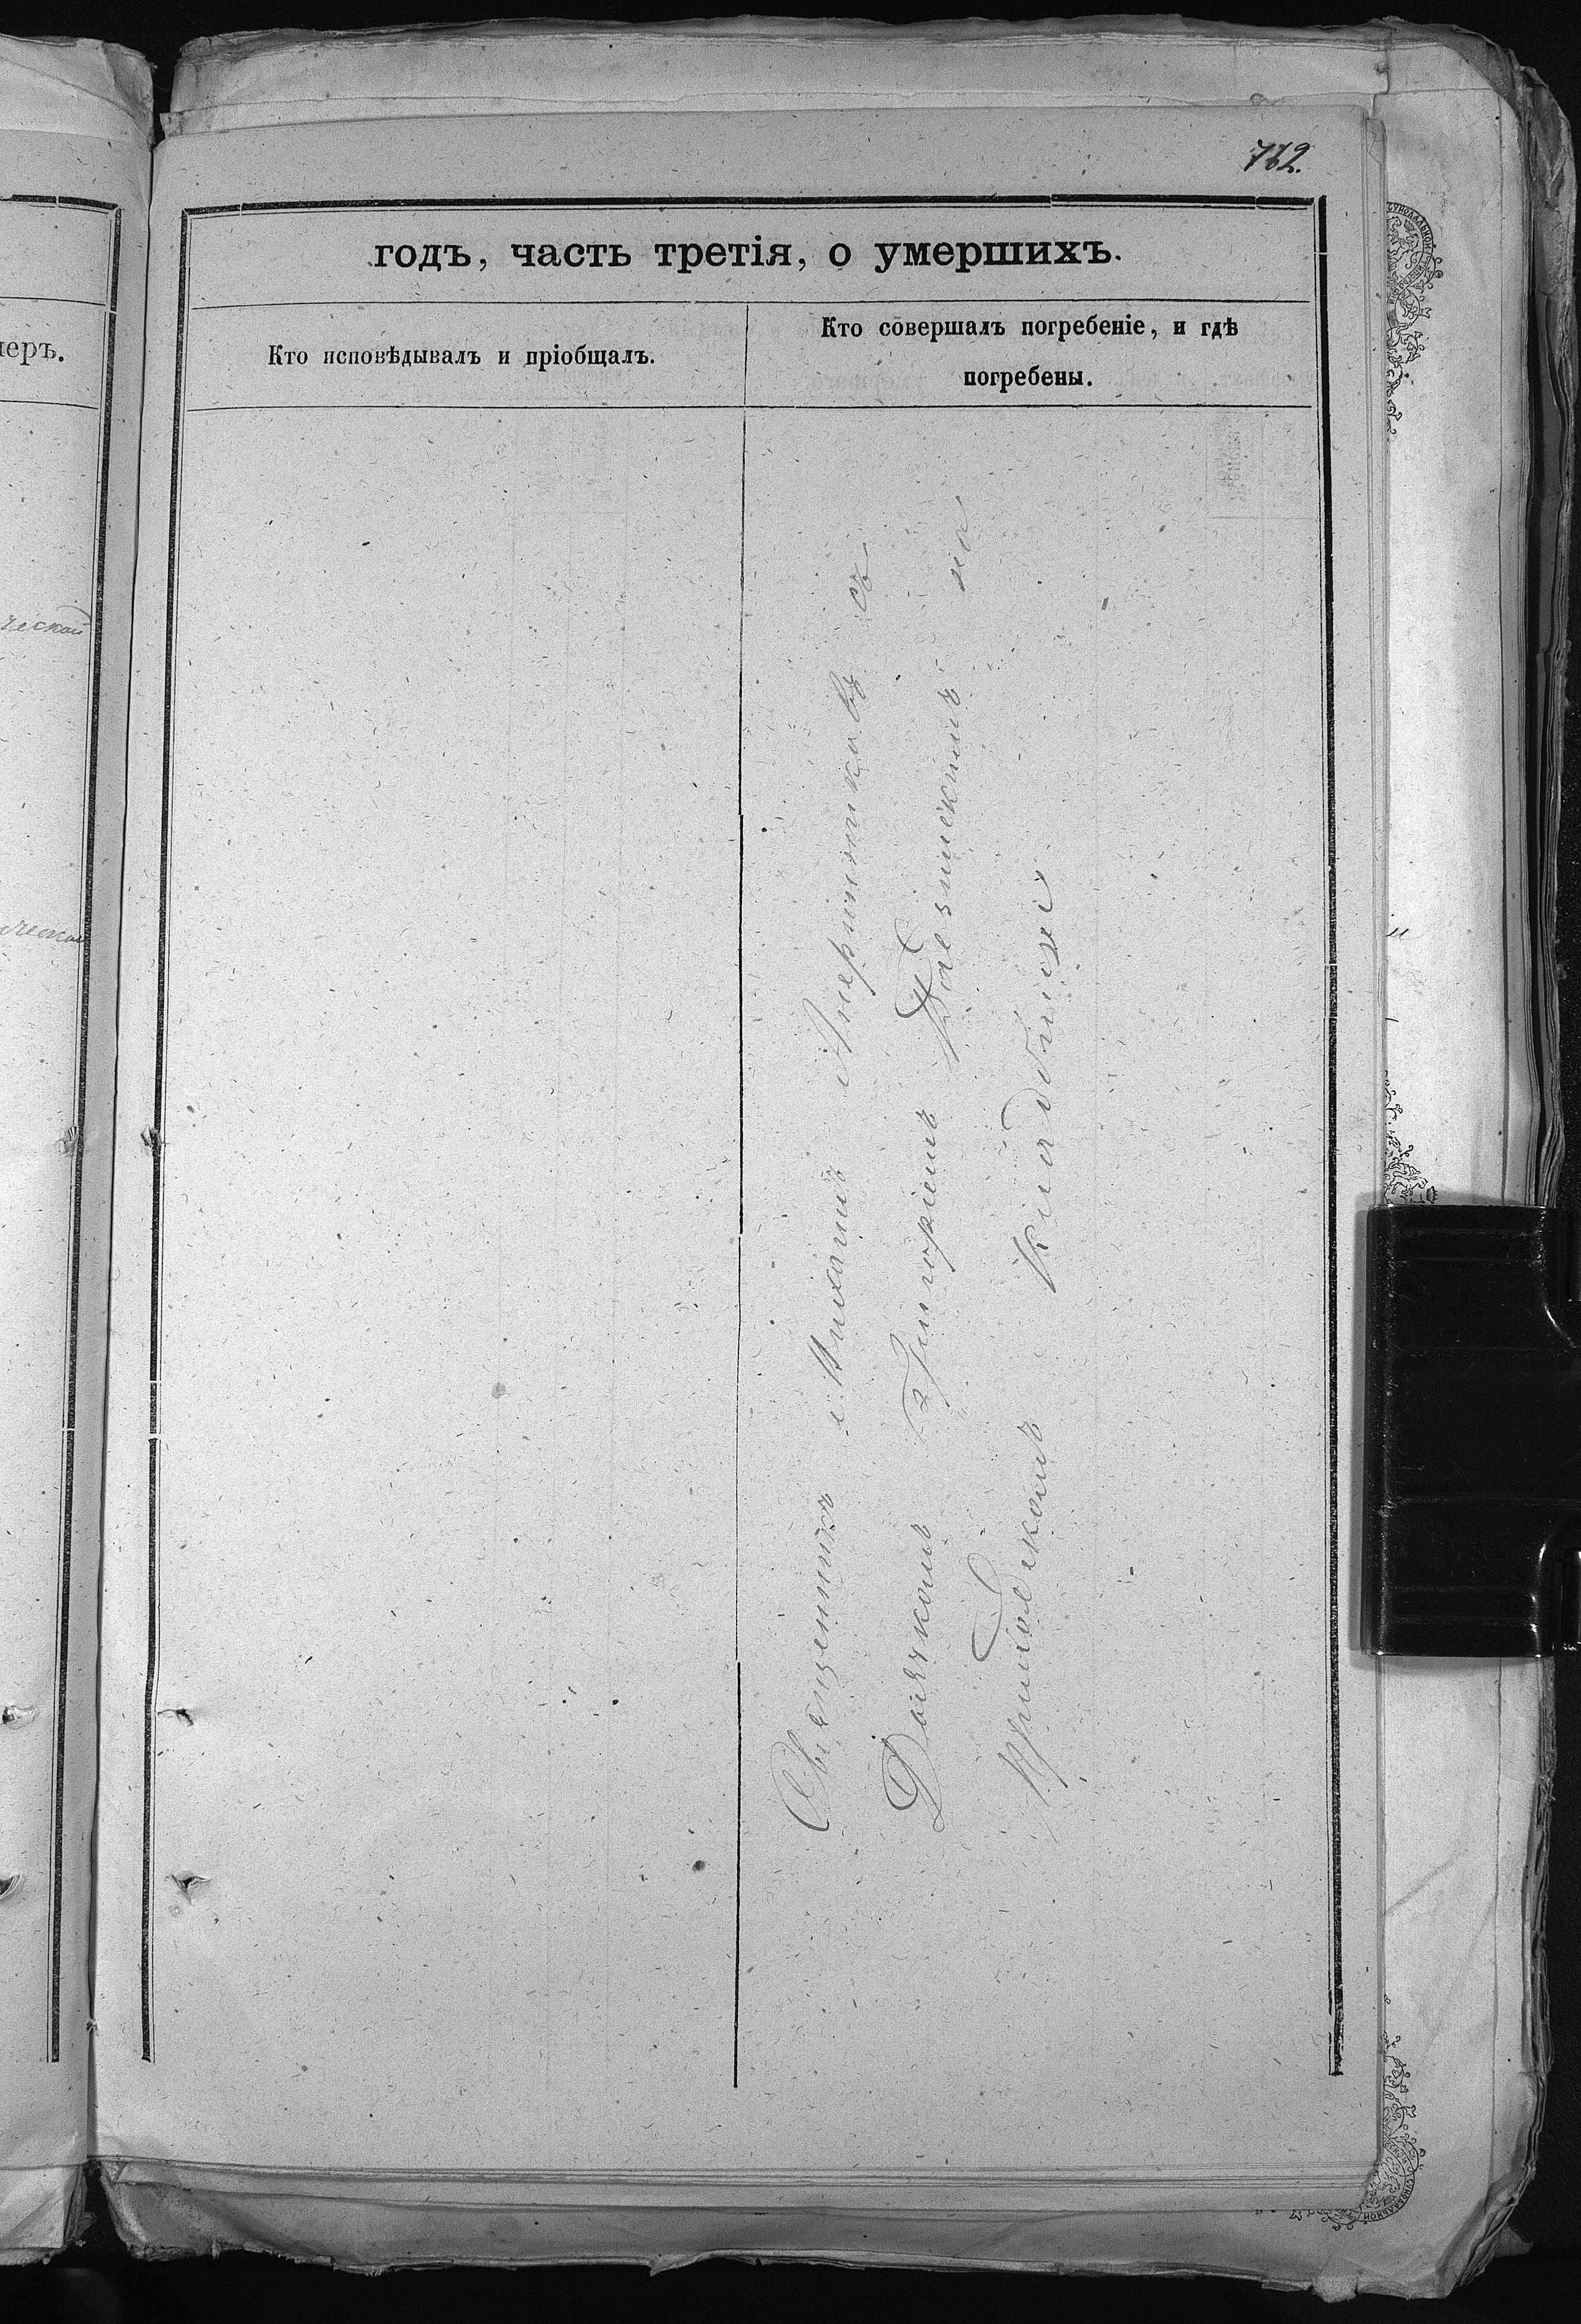 762.
годъ, часть третія, о умершихъ.
Кто исповѣдывалъ и пріобщалъ.
Кто совершалъ погребеніе, и гдѣ
погребены.
Священникъ Михаилъ съ
Дьячкомъ Григоріемъ на
Приходскомъ кладбище
перъ.
ческой